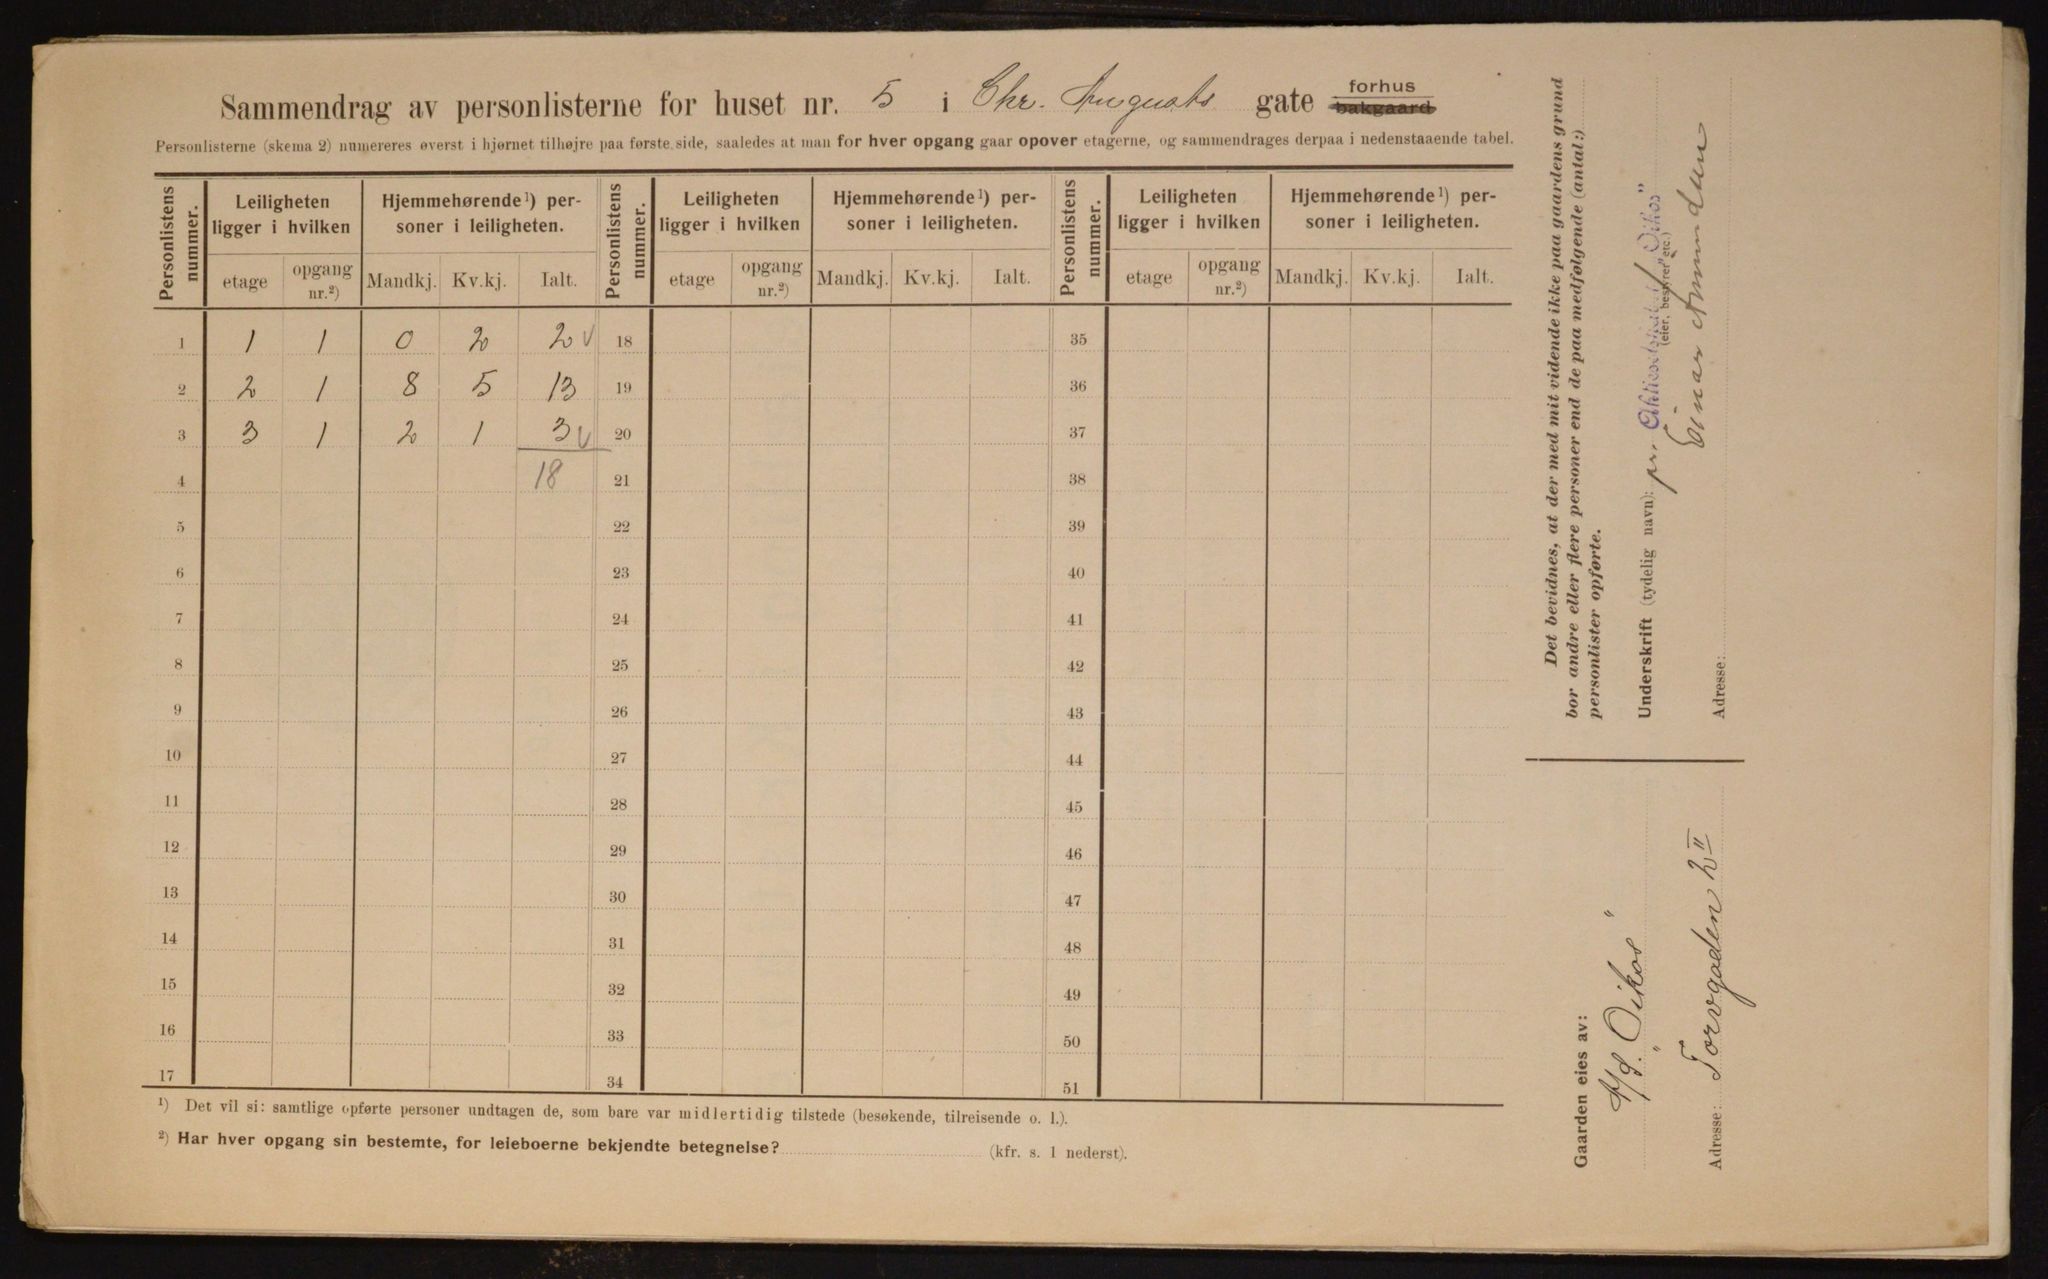 Sammendrag av personlisterne for huset nr. 5 i Chr. Augusts gate forhus bakgaard
Personlisterne (skema 2) numereres øverst i hjørnet tilhøjre paa første side, saaledes at man for hver opgang gaar opover etagerne, og sammendrages derpaa i nedenstaaende tabel.
Personlistens nummer. Leiligheten ligger i hvilken Hjemmehørende¹) personer i leiligheten. Personlistens nummer. Leiligheten ligger i hvilken Hjemmehørende¹) personer i leiligheten. Personlistens nummer. Leiligheten ligger i hvilken Hjemmehørende¹) personer i leiligheten.
etage opgang nr.²) Mandkj. Kv.kj. Ialt. etage opgang nr.²) Mandkj. Kv.kj. Ialt. etage opgang nr.²) Mandkj. Kv.kj. Ialt.
1 1 1 0 2 2 √ 18 35
2 2 1 8 5 13 19 36
3 3 1 2 1 3 √ 20 37
4 18 21 38
5 22 39
6 23 40
7 24 41
8 25 42
9 26 43
10 27 44
11 28 45
12 29 46
13 30 47
14 31 48
15 32 49
16 33 50
17 34 51
¹) Det vil si: samtlige opførte personer undtagen de, som bare var midlertidig tilstede (besøkende, tilreisende o. l.).
²) Har hver opgang sin bestemte, for leieboerne bekjendte betegnelse? (kfr. s. 1 nederst).
Det bevidnes, at der med mit vidende ikke paa gaardens grund
bor andre eller flere personer end de paa medfølgende (antal:)
personlister opførte.
Underskrift (tydelig navn): pr. Aktieselskabet „Oikos"
(eier, bestyrer etc.)
Einar Amundsen
Adresse:
Gaarden eies av:
A/S. „Oikos"
Adresse: Torvgaden 2 II